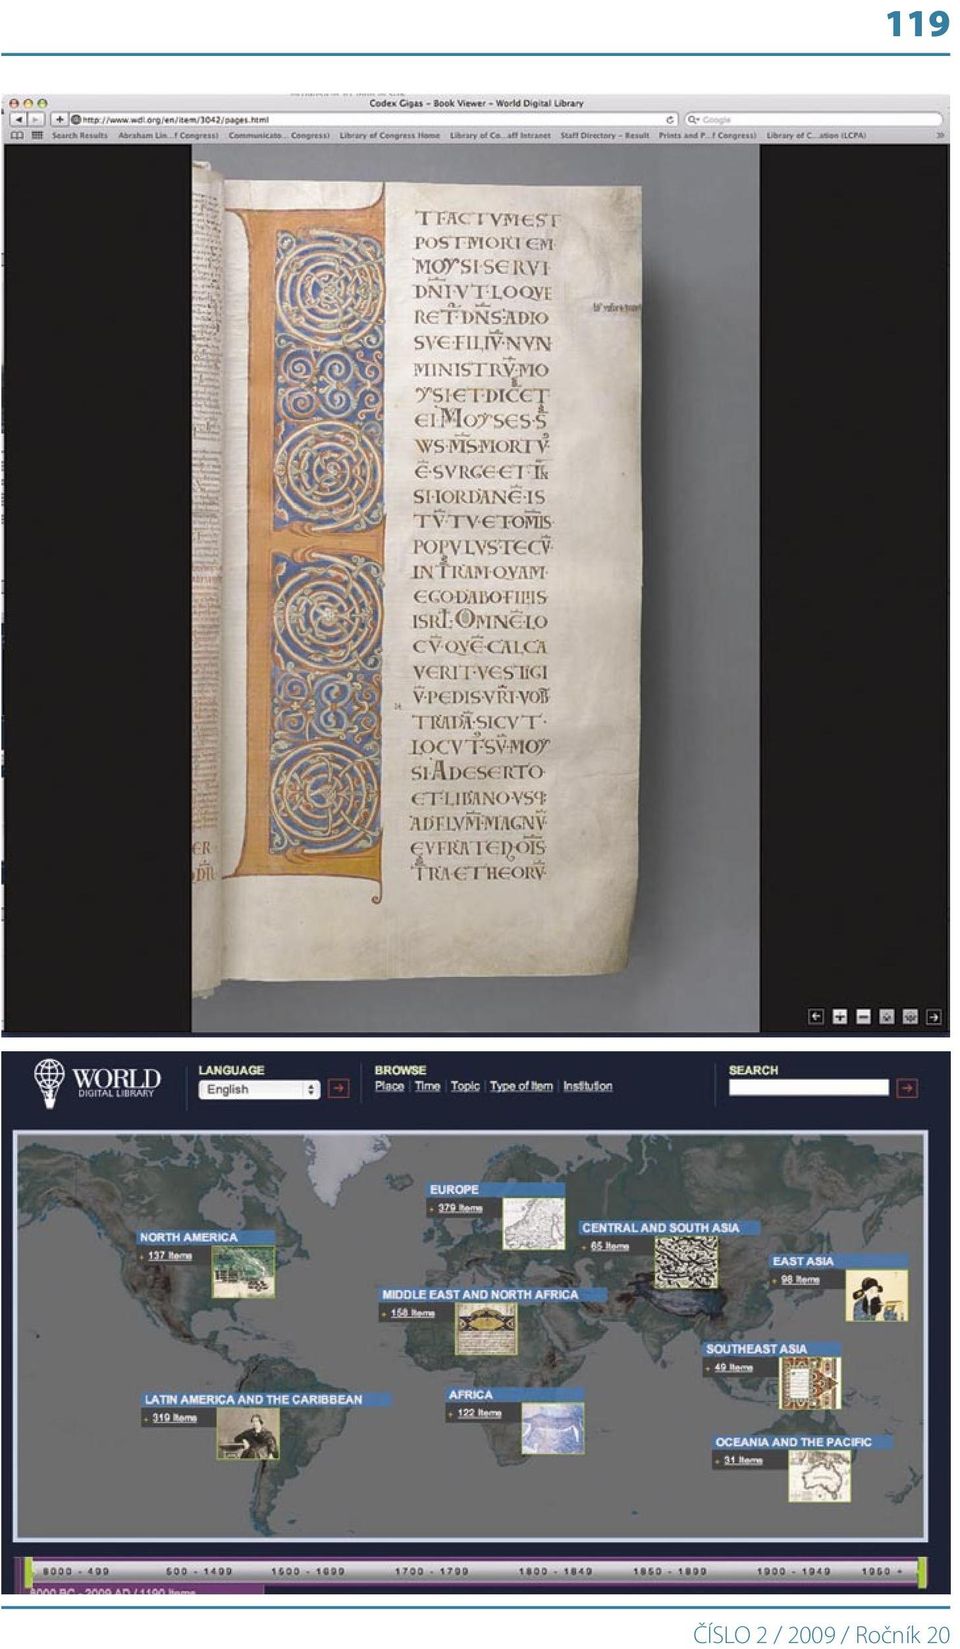 119
Codex Gigas – Book Viewer – World Digital Library
http://www.wdl.org/en/item/3042/pages.html
Google
Search Results Abraham Lin...f Congress) Communicato... Congress) Library of Congress Home Library of Co...aff Intranet Staff Directory – Result Prints and P...f Congress) Library of C...ation (LCPA)
T FACTVM EST
POST MORTEM
MOYSI SERVI
DNI VT LOQVE
RET DNS AD IO
SVE FILIV NVN
MINISTRV MO
YSI ET DICET
EI MOYSES S
WS MS MORTV
E SVRGE ET
SI IORDANE IS
TV TV ET OMIS
POPVLVS TECV
IN TRAM QVAM
EGO DABO FILIIS
ISRL OMNE LO
CV QVE CALCA
VERIT VESTIGI
V PEDIS VRI VOB
TRADA SICVT
LOCVT SV MOY
SI A DESERTO
ET LIBANO VSQ
AD FLVM MAGNV
EVFRATEN OIS
TRA ETHEORV
WORLD
DIGITAL LIBRARY
LANGUAGE
English
BROWSE
Place Time Topic Type of Item Institution
SEARCH
EUROPE
379 Items
CENTRAL AND SOUTH ASIA
65 Items
NORTH AMERICA
137 Items
EAST ASIA
98 Items
MIDDLE EAST AND NORTH AFRICA
158 Items
SOUTHEAST ASIA
49 Items
LATIN AMERICA AND THE CARIBBEAN
319 Items
AFRICA
122 Items
OCEANIA AND THE PACIFIC
31 Items
8000 - 499 500 - 1499 1500 - 1699 1700 - 1799 1800 - 1849 1850 - 1899 1900 - 1949 1950 +
8000 BC - 2009 AD / 1190 Items
ČÍSLO 2 / 2009 / Ročník 20